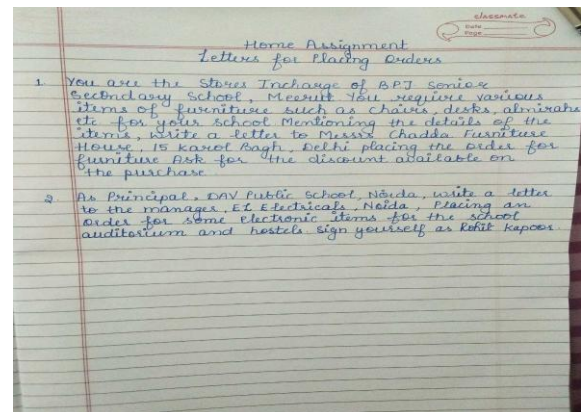 classmate
Date
Page
Home Assignment
Letters for Placing Orders
1. You are the Stores Incharge of BPJ Senior
Secondary School, Meerut You require various
items of furniture such as chairs, desks, almirahs
etc for your school Mentioning the details of the
items, write a letter to Messrs Chadda Furniture
House, 15 Karol Bagh, Delhi placing the order for
furniture Ask for the discount available on
the purchase.
2. As Principal, DAV Public School, Noida, write a letter
to the manager, EL Electricals, Noida, Placing an
order for some electronic items for the school
auditorium and hostels. Sign yourself as Rohit Kapoor.